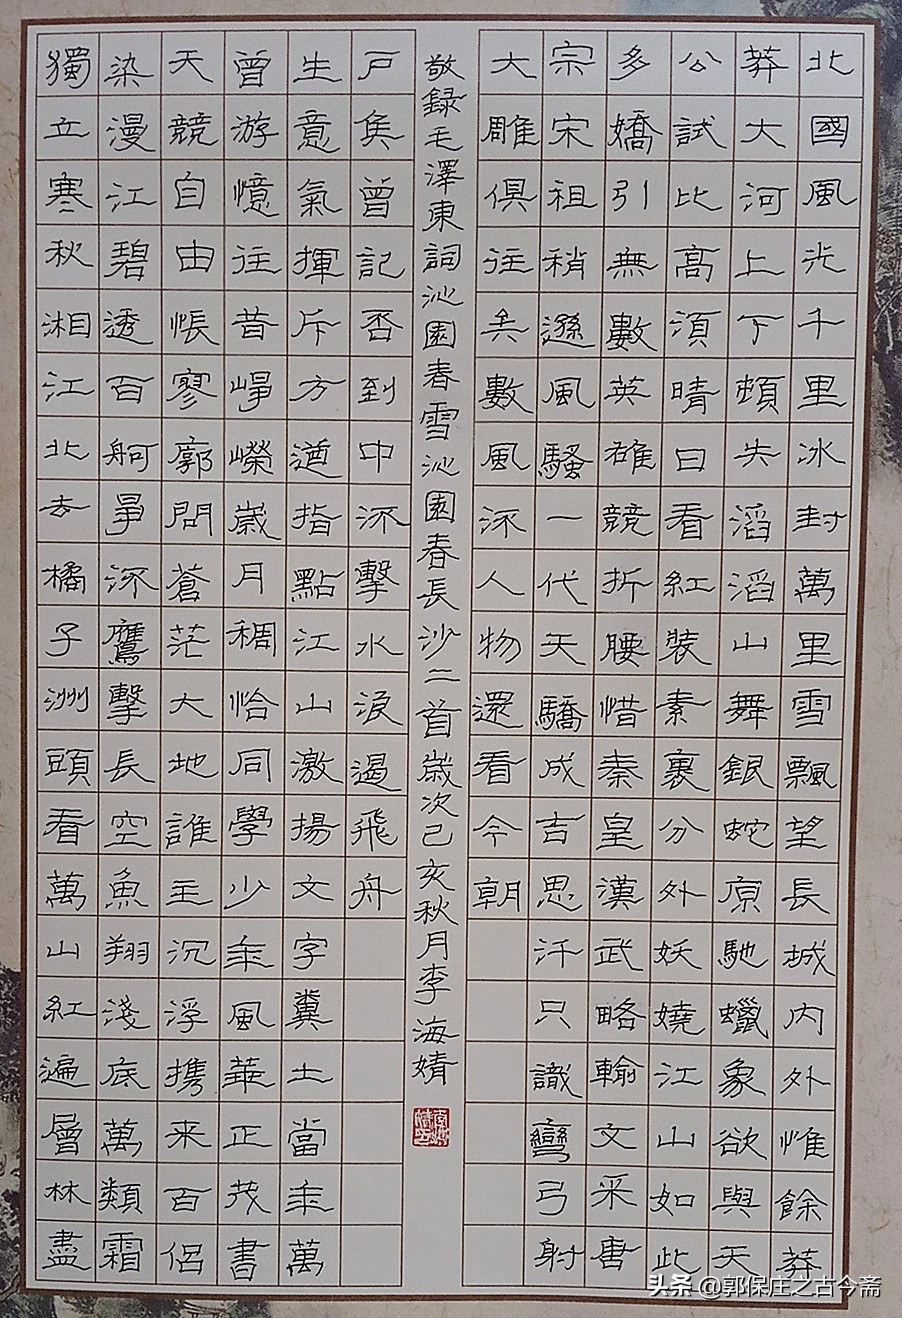 北國風光千里冰封萬里雪飄望長城內外惟餘莽
莽大河上下頓失滔滔山舞銀蛇原馳蠟象欲與天
公試比高須晴日看紅裝素裹分外妖嬈江山如此
多嬌引無數英雄競折腰惜秦皇漢武略輸文采唐
宗宋祖稍遜風騷一代天驕成吉思汗只識彎弓射
大雕俱往矣數風流人物還看今朝
獨立寒秋湘江北去橘子洲頭看萬山紅遍層林盡
染漫江碧透百舸爭流鷹擊長空魚翔淺底萬類霜
天競自由悵寥廓問蒼茫大地誰主沉浮携来百侶
曾游憶往昔崢嶸歲月稠恰同學少年風華正茂書
生意氣揮斥方遒指點江山激揚文字糞土當年萬
戶侯曾記否到中流擊水浪遏飛舟
敬録毛澤東詞沁園春雪沁園春長沙二首歲次己亥秋月李海婧
头条 @郭保庄之古今斋